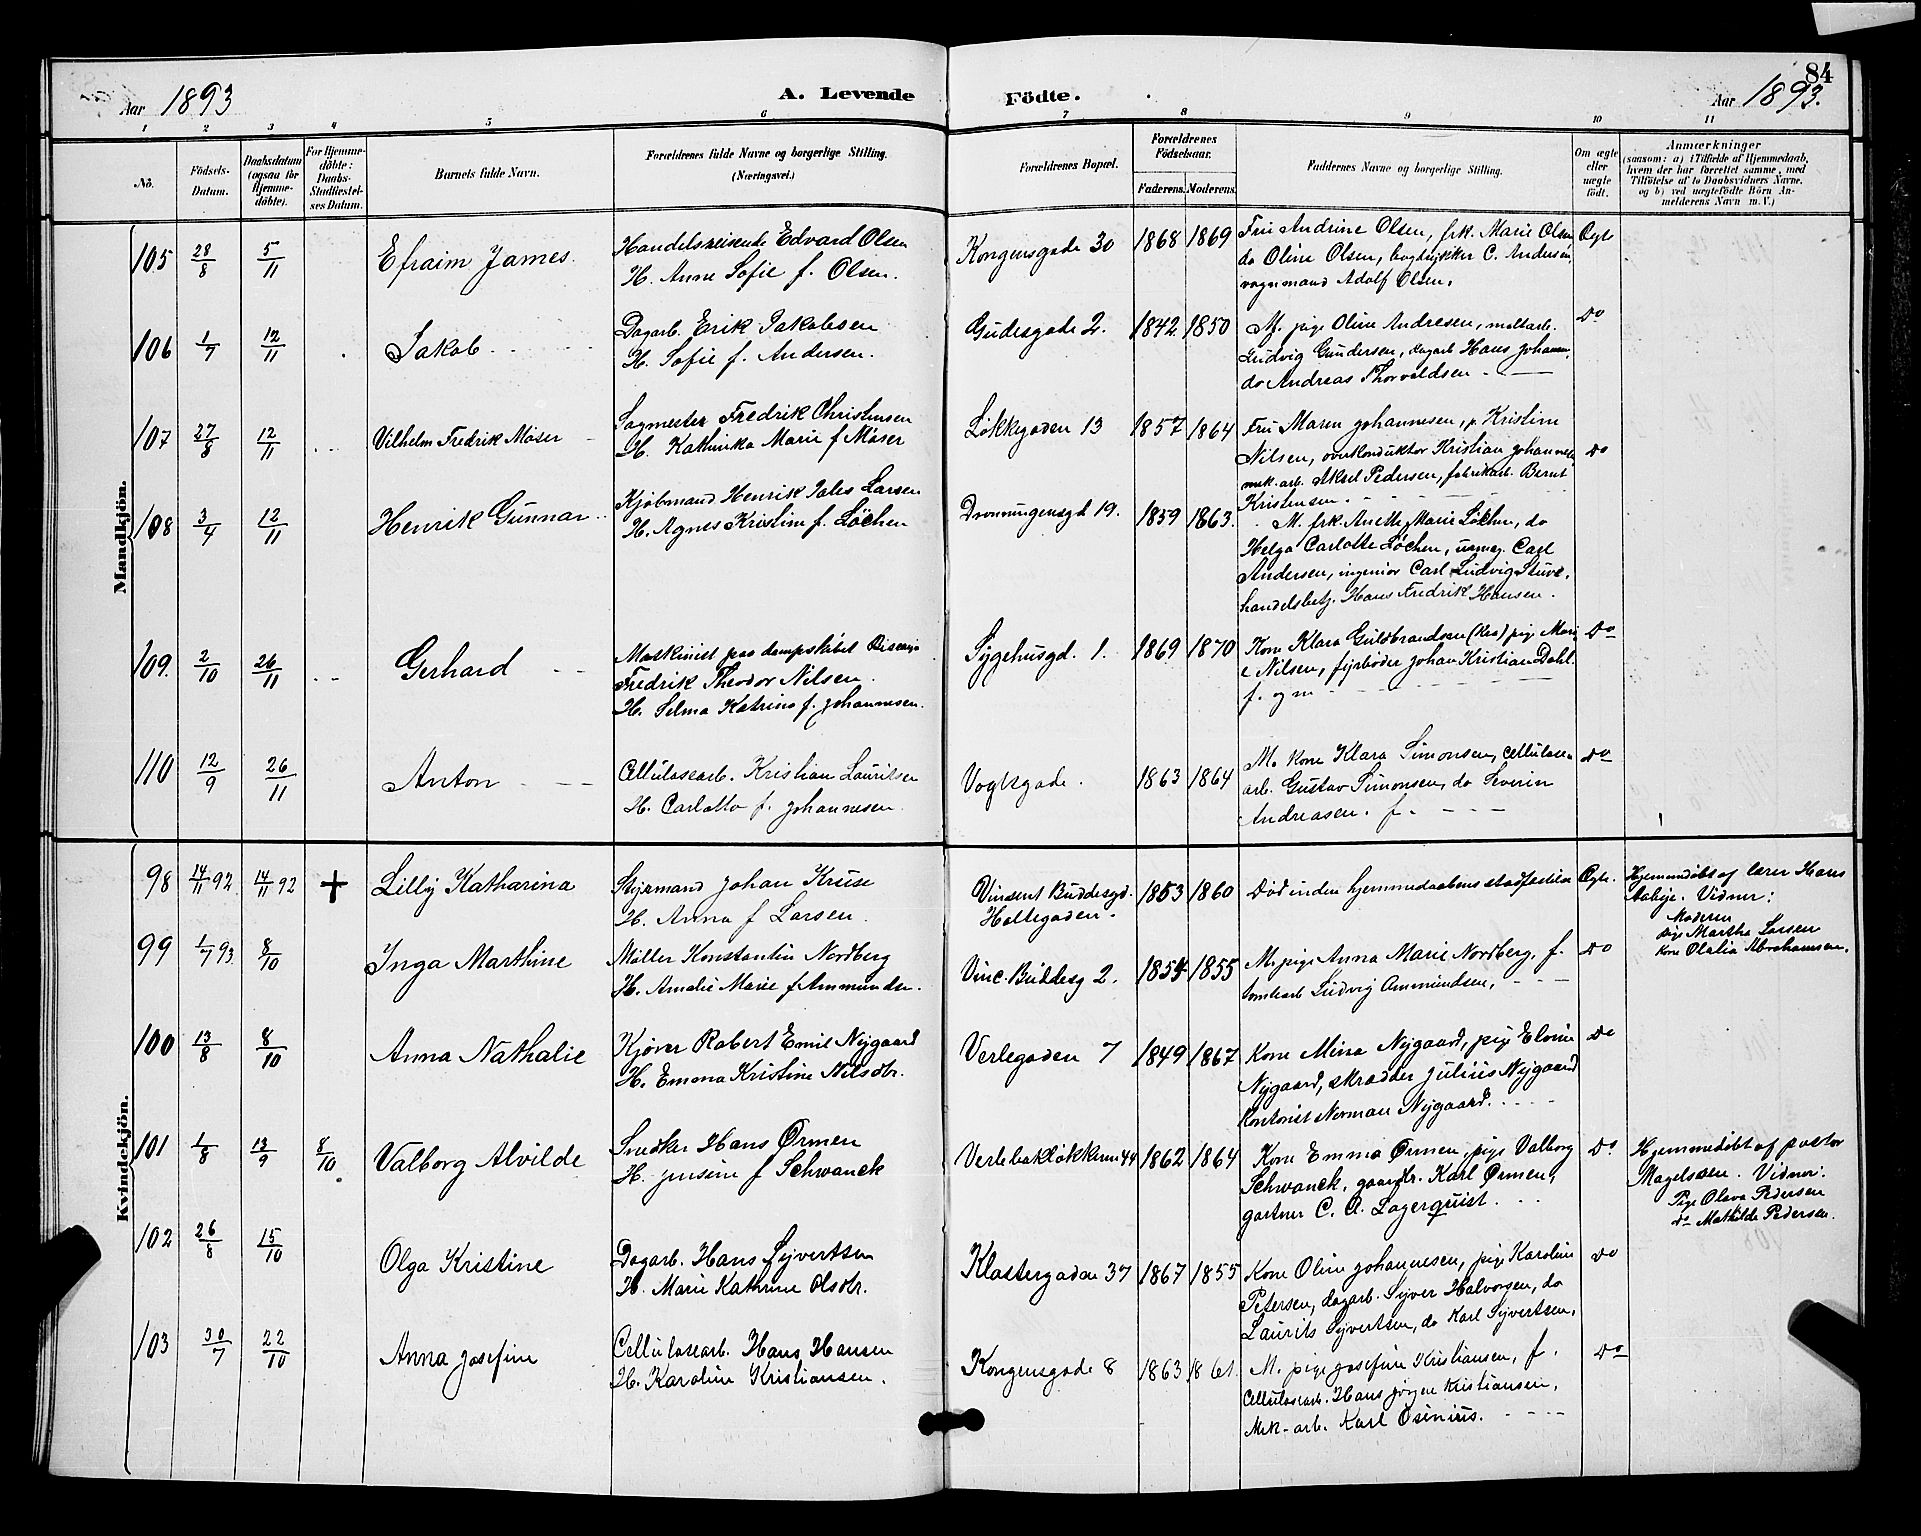 84
Aar 1893
A. Levende
Födte.
Aar 1893.
1 2 3 4 5 6 7 8 9 10 11
No.
Födsels-
Datum.
Daabsdatum
(ogsaa for
Hjemme-
döbte).
For Hjemme-
döbte:
Daabs-
Stadfæstel-
ses Datum.
Barnets fulde Navn.
Forældrenes fulde Navne og borgerlige Stilling.
(Næringsvei.)
Forældrenes Bopæl.
Forældrenes
Födselsaar.
Faderens. Moderens.
Faddernes Navne og borgerlige Stilling.
Om ægte
eller
uægte
födt.
Anmærkninger
(saasom: a) i Tilfælde af Hjemmedaab,
hvem der har forrettet samme, med
Tilföielse af to Daabsvidners Navne,
og b) ved uægtefödte Börn An-
melderens Navn m. V.)
Mandkjön.
105 28/8 5/11 Efraim James
Handelsreisende Edvard Olsen
H. Anne Sofie f. Olsen.
Kongensgade 30 1868 1869
Fru Andrine Olsen, frk. Marie Olsen,
do Oline Olsen, bogtrykker C. Andersen,
vognmand Adolf Olsen.
Ægte
106 1/7 12/11 Jakob
Dagarb. Erik Jakobsen
H. Sofie f. Andersen.
Gudesgade 2. 1842 1850
M. pige Oline Andresen, maltarb.
Ludvig Gundersen, dagarb Hans Johannes,
do Andreas Thorvaldsen
Do
107 27/8 12/11 Vilhelm Fredrik Møser
Sagmester Fredrik Christensen
H. Kathinka Marie f Møser
Løkkegaden 13 1857 1864
Fru Maren Johannesen, p. Kristine
Nilsen, overkonduktør Kristian Johannes,
mek. arb. Aksel Pedersen, fabrikarb. Bernt
Kristensen.
Do
108 3/4 12/11 Henrik Gunnar
Kjøbmand Henrik Jales Larsen
H. Agnes Kristine f. Löchen
Dronningensgd. 19. 1859 1863.
M. frk. Anette Marie Löchen, do
Helga Carlotte Løchen, urmag. Carl
Andersen, ingeniør Carl Ludvig Stuve,
handelsbetj. Hans Fredrik Hansen.
109. 2/10 26/11 Gerhard
Maskinist paa dampskibet
Fredrik Theodor Nilsen.
H. Selma Katrine f. Johannesen.
Sygehusgd. 1. 1869 1870
Kone Klara Guldbrandsen (Kra) pige Mari
e Nilsen, fyrbøder Johan Kristian Dahl.
f. og m
Do
110 12/9 26/11 Anton
Cellulosearb. Kristian Lauritsen
H. Carlotta f. Johannesen.
Vogtsgade. 1863 1864
M. Kone Klara Simonsen, Cellulose-
arb. Gustav Simonsen, do Severin
Andreasen. f.
Do
Kvindekjön.
98 14/11 92. 14/11 92 + Lilly Katharina
Styrmand Johan Kruse
H. Anna f Larsen.
Vinsent Buddesgd.
Holtegaden. 1853 1860
Död inden hjemmedaabens stadfæstelse
Ægte.
Hjemmedöbt af lærer Hans
Aabye. Vidner:
Moderen
pige Martha Larsen
Kone Olalia Abrahamsen.
99 1/7 93. 8/10 Inga Marthine
Møller Konstantin Nordberg
H. Amalie Marie f Ammundsen.
Vinc. Buddesg 2. 1854 1855
M. pige Anna Marie Nordberg, f.
tomtearb Ludvig Ammundsen,
Do
100 13/8 8/10 Anna Nathalie
Kjører Robert Emil Nygaard
H. Emma Kristine Nilsdtr.
Verlegaden 7 1849 1867
Kone Mina Nygaard, pige Elvine
Nygaard, skrædder Julius Nygaard
Kontorist Norman Nygaard.
Do
101 1/8 13/9 8/10 Valborg Alvilde
Snedker Hans Ørmen
H. Jensine f Schwanck
Verlebakløkken 44 1862 1864
Kone Emma Ormen, pige Valborg
Schwanck, gaardbr. Karl Ormen,
gartner C. A. Lagerquist.
Do
Hjemmedöbt af pastor
Magelssen. Vidner:
Pige Olava Pedersen
do Mathilde Pedersen.
102 26/8 15/10 Olga Kristine
Dagarb. Hans Syvertsen
H. Marie Kathrine Olsdtr.
Klostergaden 37 1867 1855
Kone Oline Johannesen, pige Karoline
Petersen, dagarb. Syver Halvorsen, do
Laurits Syvertsen, do Karl Syvertsen.
Do
103 30/7 22/10 Anna Josefine
Cellulosearb. Hans Hansen
H. Karoline Kristiansen.
Kongensgade 8 1863 1861.
M. pige Josefine Kristiansen, f.
Cellulosearb. Hans Jörgen Kristiansen,
Mek-arb. Karl Osenius.
Do